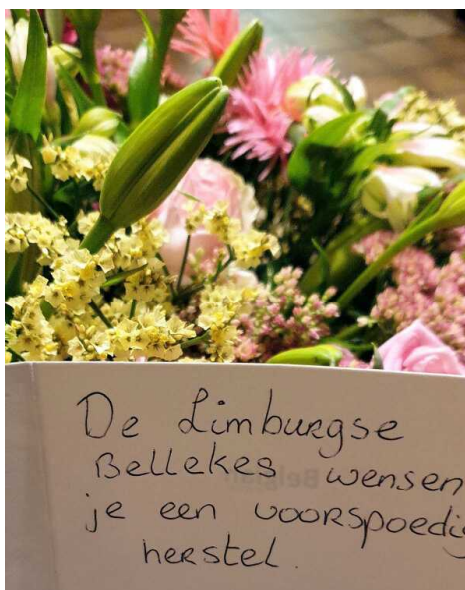 De Limburgse
Bellekes wensen
je een voorspoedig
herstel.